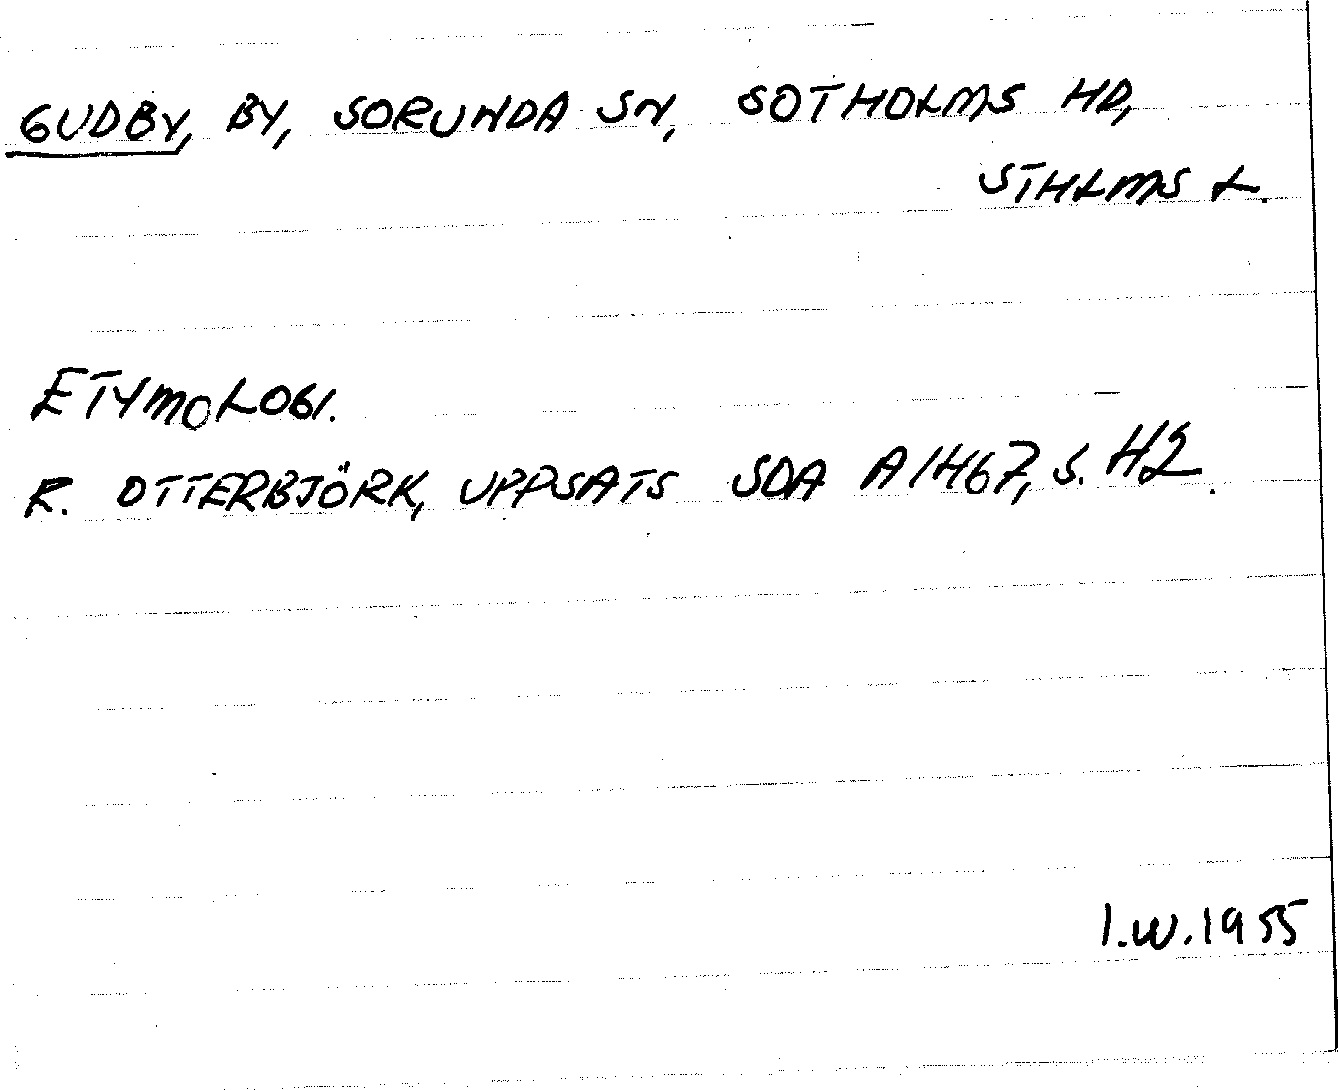 GUDBY, BY, SORUNDA SN, SOTHOLMS HD,
STHLMS L.
ETYMOLOGI.
R. OTTERBJÖRK, UPPSATS SOA A1467, S. 42.
I.W.1955